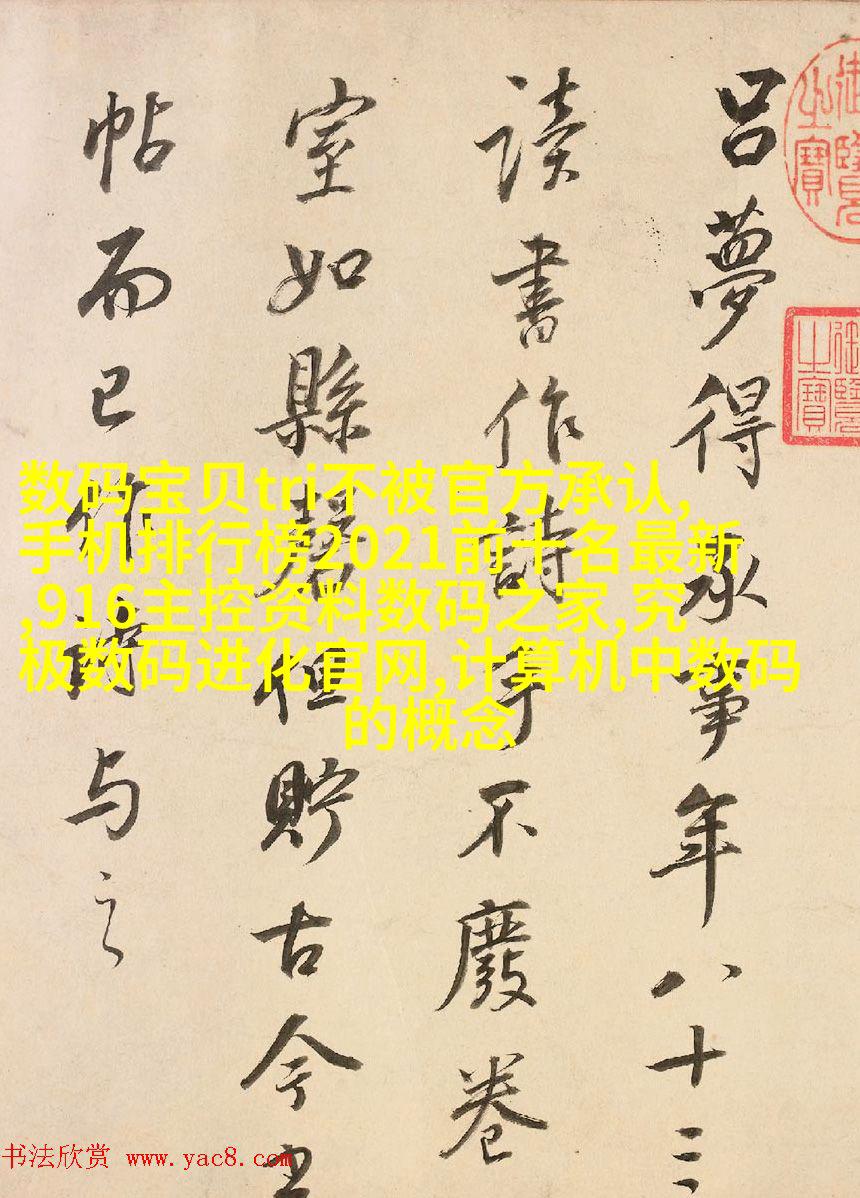 吕夢得承事年八十三
读書作詩手不廢卷
室如縣罄但貯古今
帖而已作詩与之
数码宝贝tri不被官方承认,
手机排行榜2021前十名最新
,916主控资料数码之家,究
极数码进化官网,计算机中数码
的概念
书法欣赏 www.yac8.com